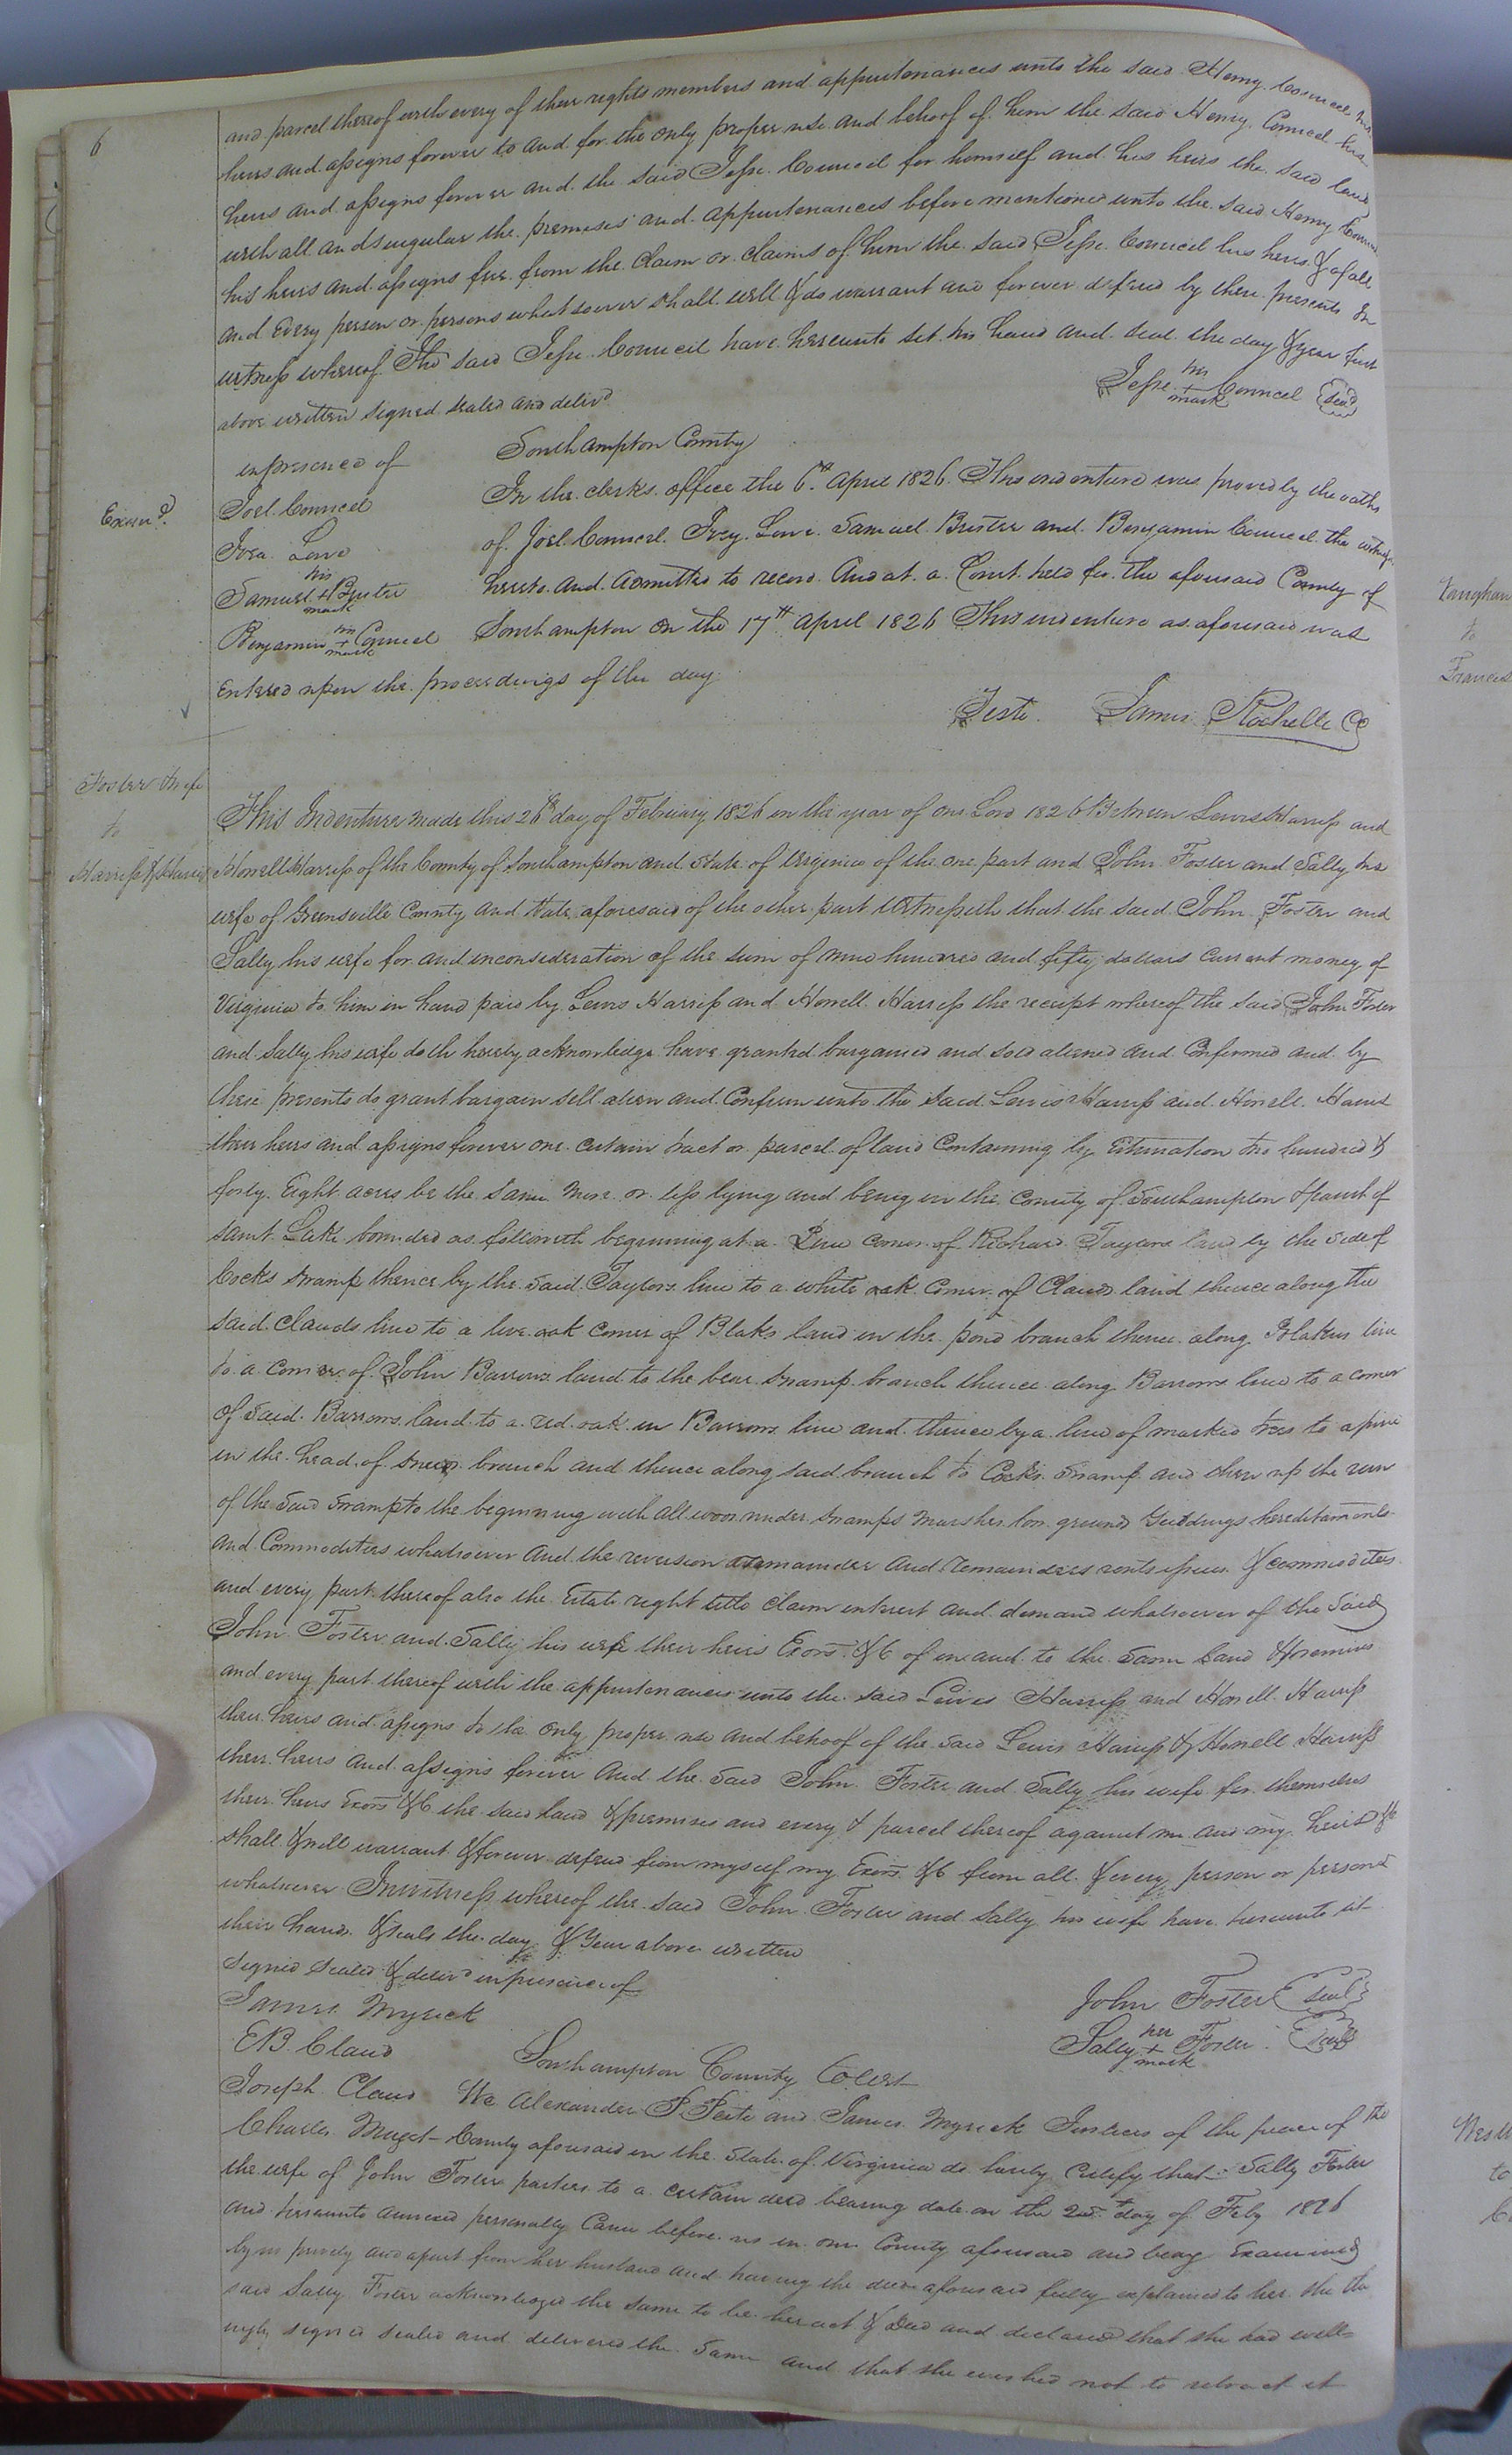 6
and parcel thereof with every of their rights members and appurtenances unto the said Henry Councel his
heirs and assigns forever to and for the only proper use and behoof of him the said Henry Councel his
heirs and assigns forever and the said Jesse Councel for himself and his heirs the said land
with all and singular the premises and appurtenances before mentioned unto the said Henry
his heirs and assigns free from the claim or claims of him the said Jesse Councel his heirs & of all
and Every person or persons whatsoever shall will & do warrant and forever defend by these presents In
witness whereof The said Jesse Councel have hereunto set his hand and seal the day & year first
above written signed sealed and delivd
Jesse his + mark Councel Seal
in presence of
Southampton County
Joel Councel
In the clerks office the 6th April 1826 This indenture was proved by the oaths
Examd.
Ivea Love
of Joel Councel Ivey Love Samuel Brister and Benjamin Councel the
Samuel his + mark Brister
hereto and admitted to record And at a Court held for the aforesaid County of
Benjamin his + mark Councel
Southampton on the 17th April 1826 This indenture as aforesaid was
Entered upon the proceedings of the day
Teste James Rochelle CC
Foster & wife
to
Harriss & Harriss
This Indenture made this 28th day of February 1826 in the year of our Lord 1826 Between Lewis Harriss and
Howell Harriss of the County of Southampton and State of Virginia of the one part and John Foster and Sally his
wife of Greensville County and State aforesaid of the other part Witnesseth that the said John Foster and
Sally his wife for and in consideration of the sum of nine hundred and fifty dollars current money of
Virginia to him in hand paid by Lewis Harriss and Howell Harriss the receipt whereof the said John Foster
and Sally his wife doth hereby acknowledge have granted bargained and sold aliened and Confirmed and by
these presents do grant bargain sell alien and Confirm unto the said Lewis Harriss and Howell Harriss
their heirs and assigns forever one certain tract or parcel of land Containing by Estimation two hundred &
forty Eight acres be the same more or less lying and being in the County of Southampton & parish of
saint Luke bounded as followeth beginning at a Pine corner of Richard Taylors land by the side of
Cocks swamp thence by the said Taylors line to a white oak Corner of Clauds land thence along the
said Clauds line to a live oak corner of Blaks land in the pond branch thence along Blakes line
to a corner of John Barrows land to the bear swamp branch thence along Barrows line to a corner
of said Barrows land to a red oak in Barrows line and thence by a line of marked trees to a pine
in the head of branch and thence along said branch to Cocks Swamp and then up the run
of the said swamp to the beginning with all woods under swamps marshes low grounds hereditaments
and Commodities whatsoever And the reversion & remainder and Remainders rents issues & commodities
and every part thereof also the Estate right title Claim interest and demand whatsoever of the said
John Foster and Sally his wife their heirs Exors &C of in and to the same land & premises
and every part thereof with the appurtenances unto the said Lewis Harriss and Howell Harriss
their heirs and assigns to the only proper use and behoof of the said Lewis Harriss & Howell Harriss
their heirs and assigns forever And the said John Foster and Sally his wife for themselves
their heirs Exors &C the said land & premises and every & parcel thereof against me and my heirs &c
shall & will warrant & forever defend from myself my Exors &C from all & every person or persons
whatsoever In witness whereof the said John Foster and Sally his wife have hereunto set
their hands & seals the day & Year above written
signed sealed & delivd in presence of
James Myrick
John Foster Seal
E B Claud
Sally her + mark Foster Seal
Southampton County Towit
Joseph Claud
We Alexander P Peete and James Myrick Justices of the peace of the
Charles Mugct
County aforesaid in the State of Virginia do hereby certify that Sally Foster
the wife of John Foster parties to a certain deed bearing date on the day of Feby 1826
and hereunto annexed personally came before us in our County aforesaid and being Examined
by us privily and apart from her husband and having the deed aforesaid fully explained to her she the
said Sally Foster acknowledged the same to be her act & Deed and declared that she had will-
ingly signed sealed and delivered the same and that she wished not to retract it
Vaughan
to
Francis
to